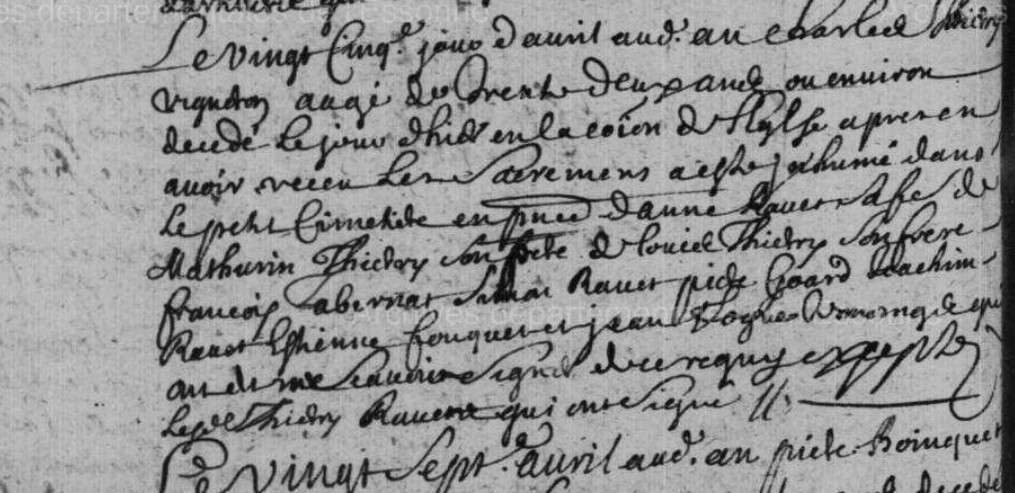 Le vingt Cinq.e jour d'avril aud. an Charles Thiedry
vigneron aagé de trente deux ans ou environ
decedé le jour d'hier en la coion de l'Eglse apres en
avoir receu les Sacremens a esté inhumé dans
le petit Cimetiere en pnce d'anne Ravet sa fe de
Mathurin Thiedry son frere & louis Thiedry son frere
francois abernat Simon Ravet piere Joachim
Ravet Estienne fouquet et jean qui
ont dit ne scavoir signer de ce requis excepté
led Thiedry Ravet qui ont signé //.
Le vingt Sept. d'avril aud. an piere Boinquet